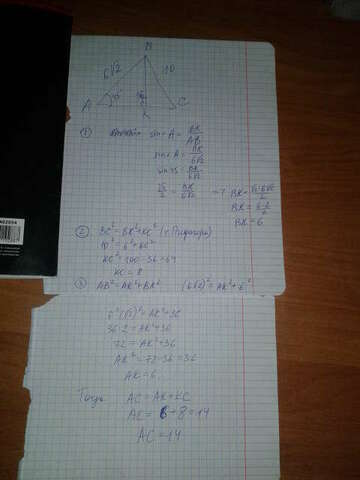 B
6√2
10
A
45°
K
C
① sin A = BK/AB
sin A = BK/6√2
sin 45 = BK/6√2
√2/2 = BK/6√2 => BK = √2·6√2/2
BK = 6·2/2
BK = 6
② BC² = BK² + KC² (т. Пифагора)
10² = 6² + KC²
KC² = 100 - 36 = 64
KC = 8
③ AB² = AK² + BK² (6√2)² = AK² + 6²
6²(√2)² = AK² + 36
36·2 = AK² + 36
72 = AK² + 36
AK² = 72 - 36 = 36
AK = 6
Тогда AC = AK + KC
AC = 6 + 8 = 14
AC = 14